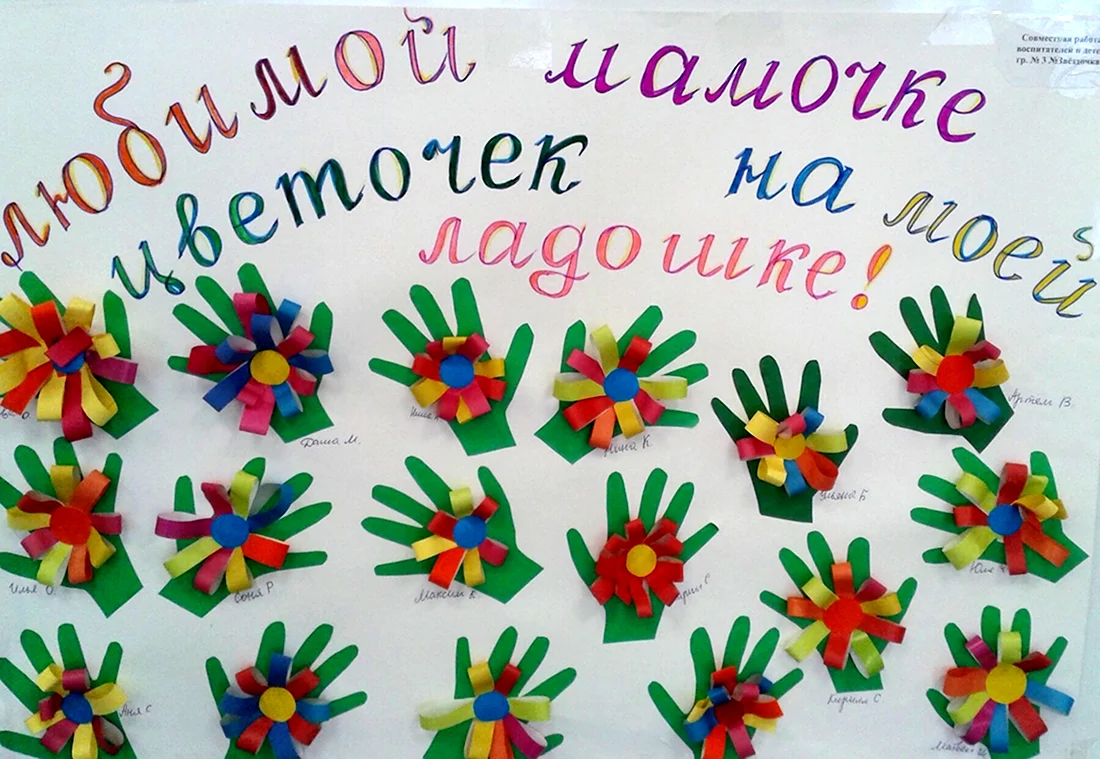 любимой мамочке
цветочек на моей
ладошке!
Совместная работа
воспитателей и дете
гр. № 3 №Звёздочка
Даша М.
Нина К.
Ульяна Б
Артём В.
Илья О.
Соня Р
Максим К.
Юля
Аня С
Кирилл С
Матвей